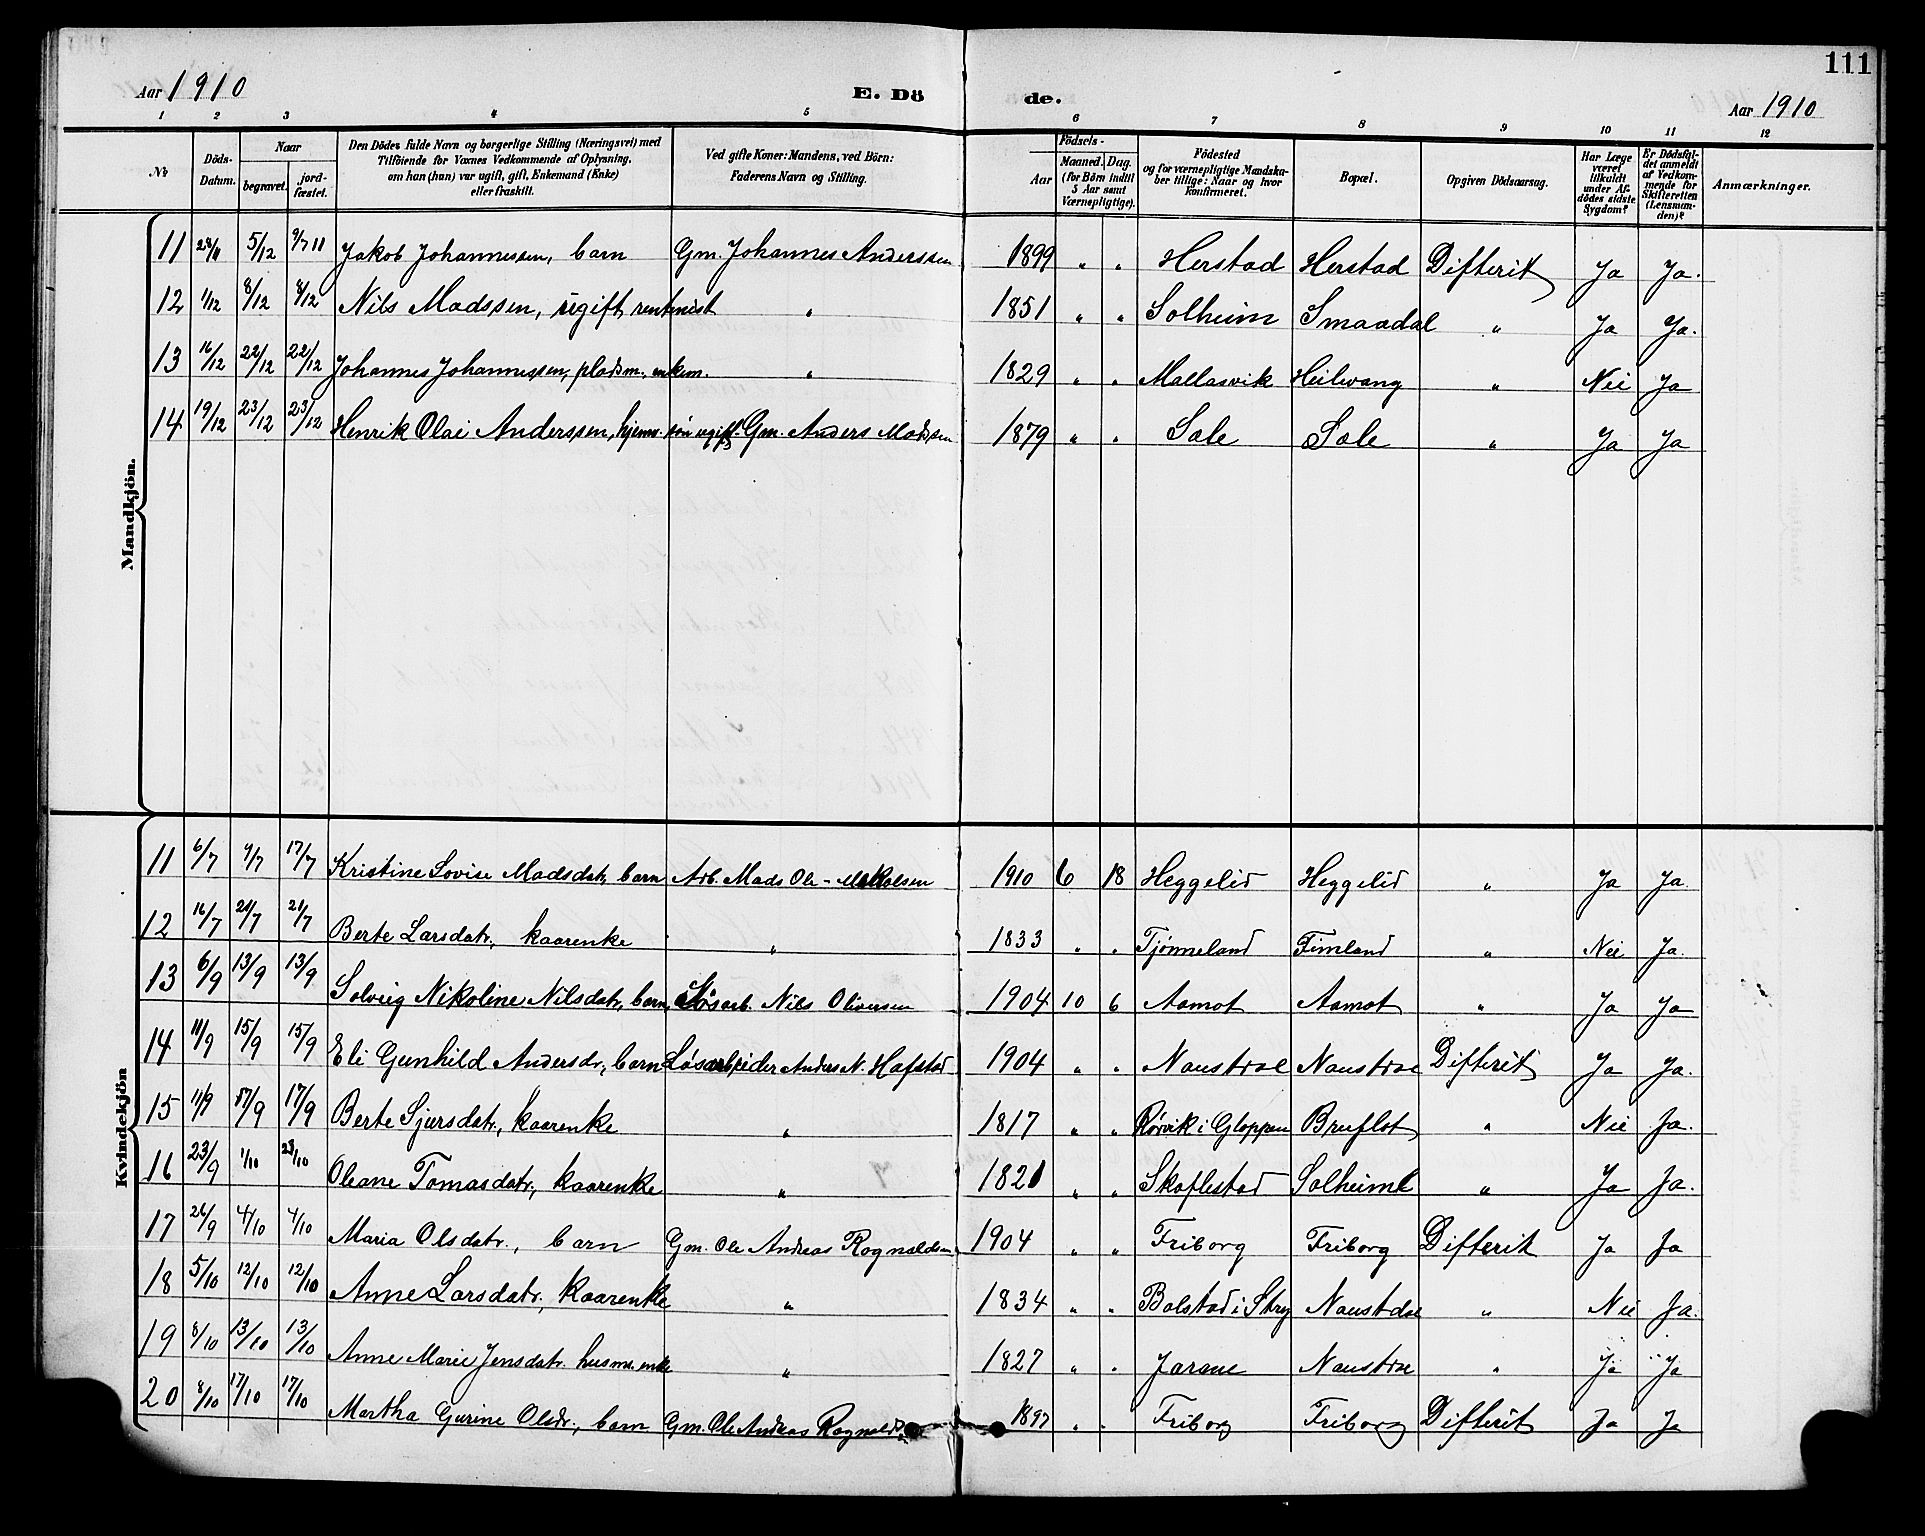 111
Aar 1910 E. Dö de. Aar 1910
1 2 3 4 5 6 7 8 9 10 11 12
No Döds-Datum. Naar begravet. jord-fæstet. Den Dödes fulde Navn og borgerlige Stilling (Næringsvei) med Tilföiende for Voxnes Vedkommende af Oplysning, om han (hun) var ugift, gift, Enkemand (Enke) eller fraskilt. Ved gifte Koner: Mandens, ved Börn: Faderens Navn og Stilling. Födsels- Aar Maaned. Dag. (for Börn indtil 5 Aar samt Værnepligtige). Födested og for værnepligtige Mandska-ber tillige: Naar og hvor konfirmeret. Bopæl. Opgiven Dödsaarsag. Har Læge været tilkaldt under Af-dödes sidste Sygdom? Er Dödsfal-det anmeldt af Vedkom-mende for Skifteretten (Lensman-den)? Anmærkninger.
Mandkjön.
11 5/12 9/7 11 Jakob Johannessen, barn Gm. Johannes Anderssen 1899 " " Herstad Herstad Difterit Ja Ja.
12 1/12 8/12 8/12 Nils Madssen, ugift rentenist " 1851 " " Solheim Smaadal " Ja Ja.
13 16/12 22/12 22/12 Johannes Johannessen, pladsm., enkem. " 1829 " " Mallasvik Heilevang " Nei Ja
14 19/12 23/12 23/12 Henrik Olai Anderssen, hjemv. søn ugift. Gm. Anders Madssen 1879 " " Sæle Sæle " Ja Ja
Kvindekjön
11 6/7 9/7 17/7 Kristine Lovise Madsdatr, barn Arb. Mads Ole- 1910 6 18 Heggelid Heggelid " Ja Ja.
12 16/7 21/7 21/7 Berte Larsdatr., kaarenke " 1833 " " Tjønneland Fimland " Nei Ja.
13 6/9 13/9 13/9 Solveig Nikoline Nilsdatr, barn, Løsarb. Nils Oliversen 1904 10 6 Aamot Aamot " Ja Ja
14 11/9 15/9 15/9 Eli Gunhild Andersdr., barn Løsarbeider Anders N. Hafstad 1904 " " Naustdal Naustdal Difterit Ja Ja.
15 11/9 17/9 17/9 Berte Sjursdatr., kaarenke " 1817 " " Rørvik i Gloppen Bruflot " Nei Ja.
16 23/9 1/10 23/10 Oleane Tomasdatr., kaarenke " 1821 " " Skaflestad Solheim " Ja Ja.
17 26/9 4/10 4/10 Maria Olsdatr., barn Gm. Ole Andreas Rognaldsen 1904 " " Friborg Friborg Difterit Ja Ja
18 5/10 12/10 12/10 Anne Larsdatr., kaarenke " 1834 " " Bolstad i Stry Naustdal " Nei Ja.
19 8/10 13/10 13/10 Anne Marie Jensdatr. husm. enke " 1827 " " Jarane Naustdal " Ja Ja
20 8/10 17/10 17/10 Martha Gurine Olsdr., barn Gm. Ole Andreas Rognalds. 1897 " " Friborg Friborg Difterit Ja Ja